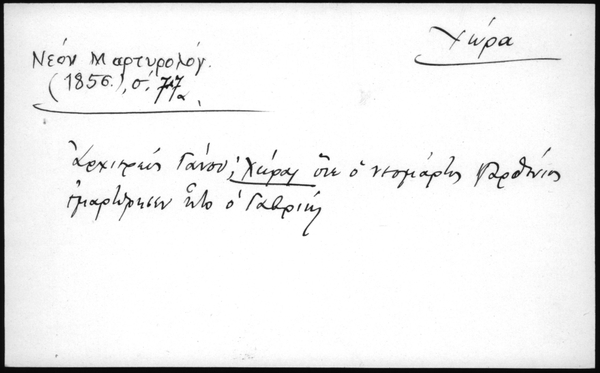 Χώρα
Νέον Μαρτυρολόγ.
(1856), σ. 77α.
Ἀρχιερεὺς Γάνου, Χώρας ὅτε ὁ νεομάρτυς Παρθένιος
ἐμαρτύρησεν ἦτο ὁ Γαβριήλ